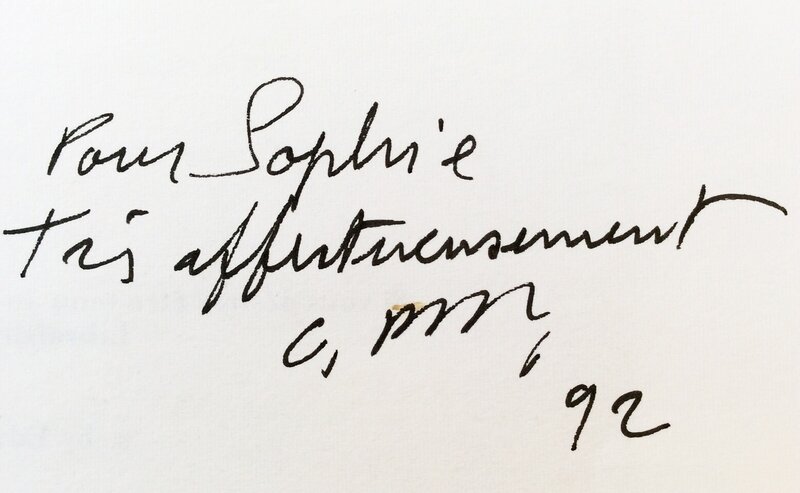 Pour Sophie
Très affectueusement
C.
92